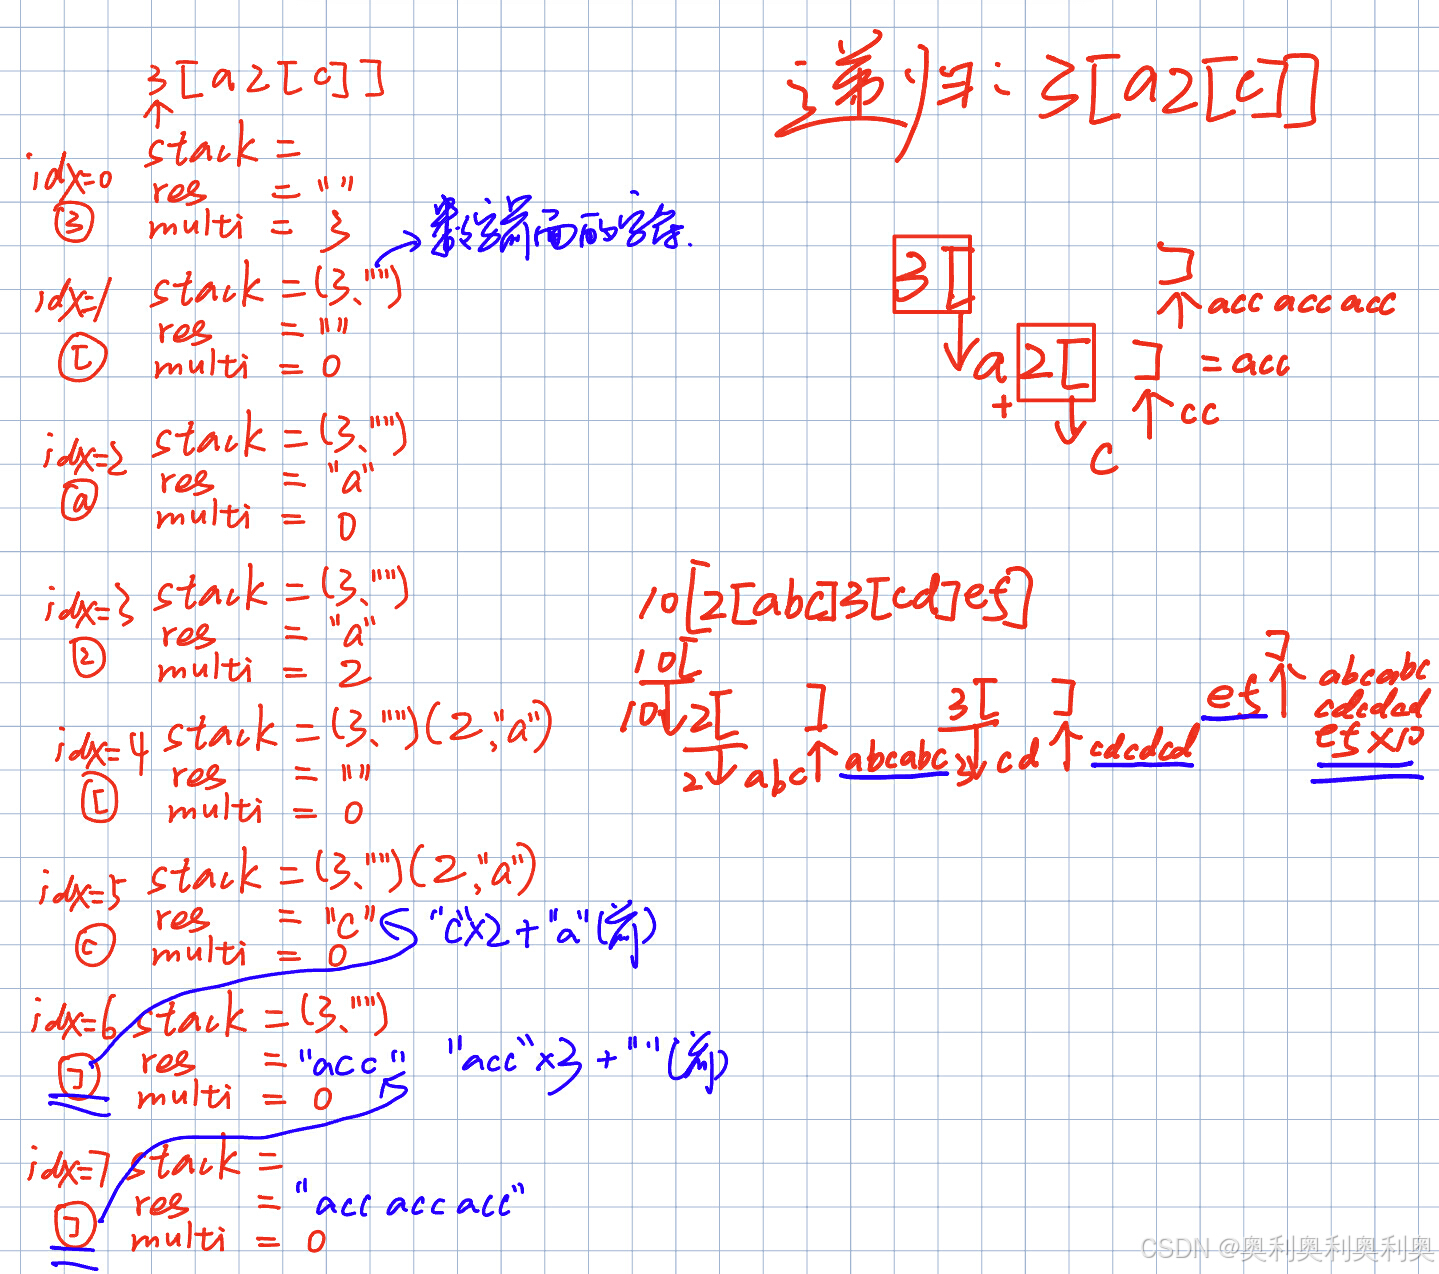 3[a2[c]]
idx=0
③
stack =
res = ""
multi = 3
数字前面的字符.
idx=1
[
stack = (3、"")
res = ""
multi = 0
idx=2
a
stack = (3、"")
res = "a"
multi = 0
idx=3
2
stack = (3、"")
res = "a"
multi = 2
idx=4
[
stack = (3、"")(2,"a")
res = ""
multi = 0
idx=5
c
stack = (3、"")(2,"a")
res = "c"
multi = 0
"c"x2+"a"(前)
idx=6
]
stack = (3、"")
res = "acc"
multi = 0
"acc"x3+""(前)
idx=7
]
stack =
res = "acc acc acc"
multi = 0
递归: 3[a2[c]]
3[ ]
acc acc acc
a 2[ ] = acc
+ cc
c
10[2[abc]3[cd]ef]
10[ ]
10 2[ ] 3[ ] ef
2 abc abcabc 3 cd cdcdcd
abcabc
cdcdcd
efx10
CSDN @奥利奥利奥利奥